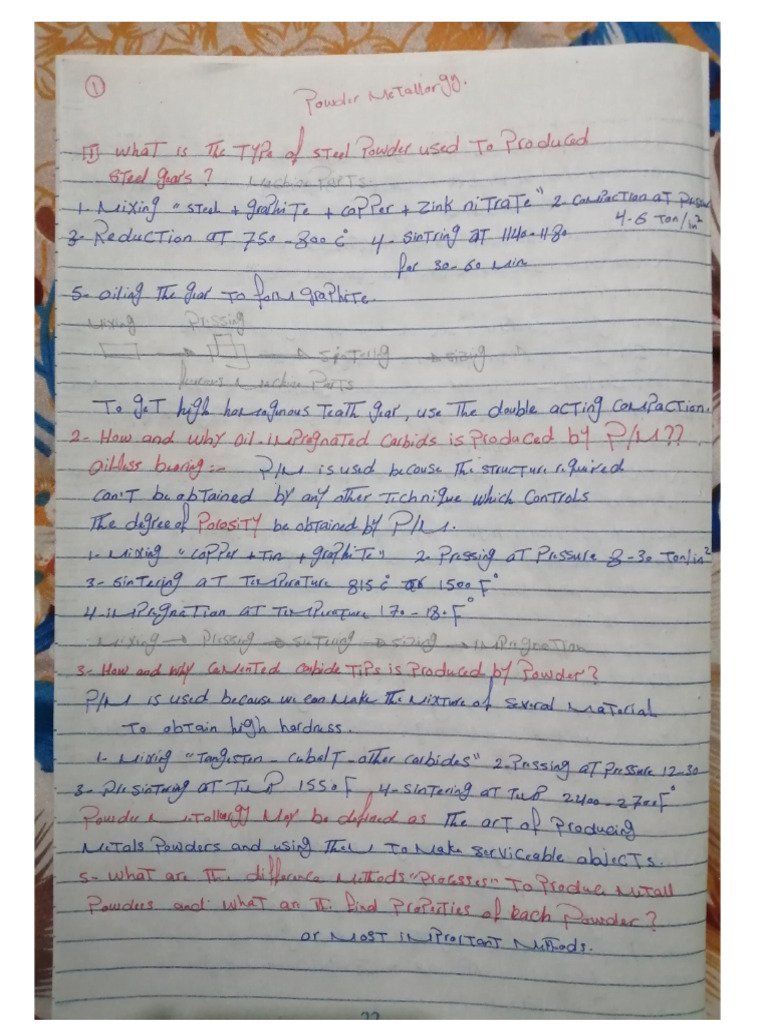 1
Powder Metallorgy.
1 What is The Type of steel Powder used To Produced
steel gears? Machine Parts
1- Mixing "steel + graphite + copper + zink nitrate" 2- compaction at pressure
4-6 Ton/in²
3- Reduction AT 750-800 c° 4- sintring AT 1140-1180
for 30-60 Min
5- oiling The gear To form graphite.
Mixing Pressing
sintering sizing
Machine Parts
To get high homogenous Teath gear, use The double acting compaction.
2- How and why oil-impregnated Carbids is Produced by P/M??
Oilless bearing:- P/M is used because The structure required
can't be obtained by any other Technique which controls
The degree of Porosity be obtained by P/M.
1- Mixing "copper + Tin + graphite" 2- Pressing at Pressure 8-30 Ton/in²
3- sintering at Temperature 815 c° or 1500 F°
4- impregnation at Temperature 170-180 F°
Mixing → Pressing → sintering → sizing → impregnation
3- How and why cemented carbide Tips is Produced by Powder?
P/M is used because we can make The Mixture of several Material
To obtain high hardness.
1- Mixing "Tangesten - cubalt - other carbides" 2- Pressing at Pressure 12-30
3- Presintering at Temp 1550 F, 4- sintering at Temp 2400-2700 F°
Powder Metallurgy May be defined as The art of Producing
Metals Powders and using Them To Make serviceable abjects.
5- What are The difference Methods "Processes" To Produce Metall
Powders and what are The find Properties of each Powder?
or Most imprortant Methods.
22